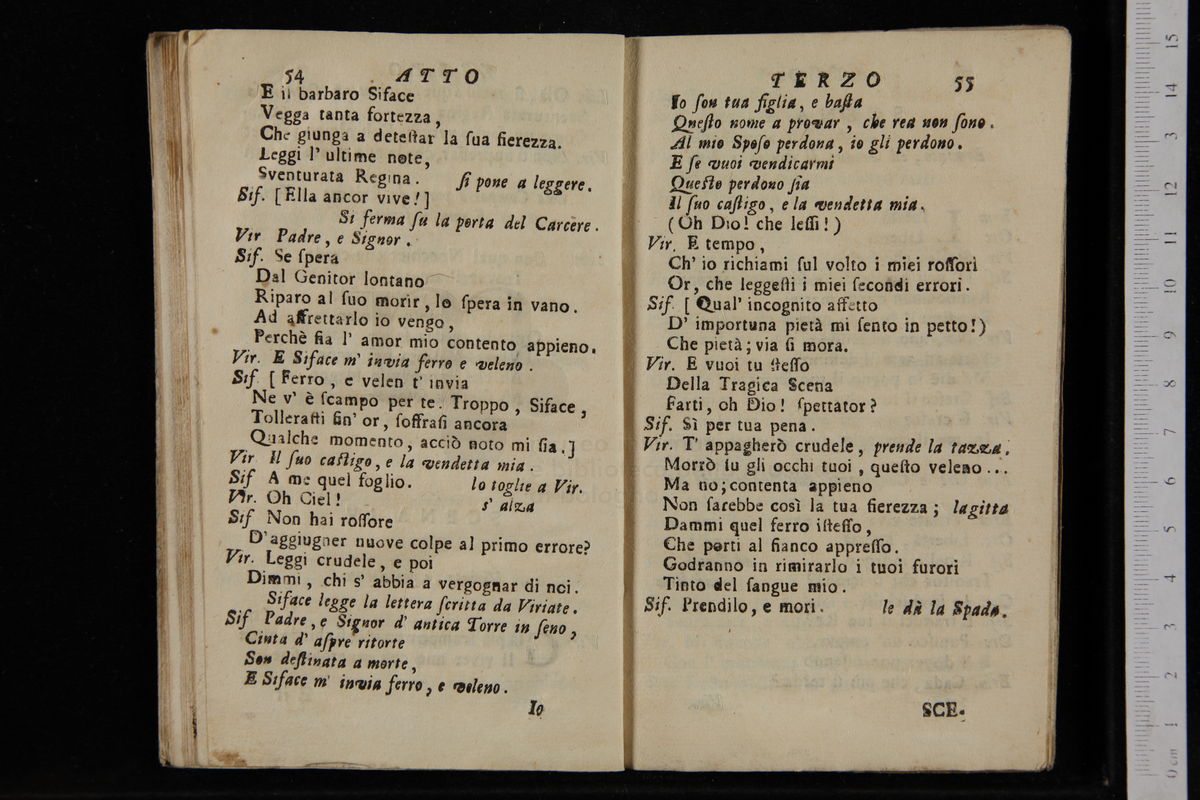 54 ATTO
E il barbaro Siface
Vegga tanta fortezza,
Che giunga a deteſtar la ſua fierezza.
Leggi l' ultime note,
Sventurata Regina. ſi pone a leggere.
Sif. [Ella ancor vive!]
Si ferma ſu la porta del Carcere.
Vir Padre, e Signor.
Sif. Se ſpera
Dal Genitor lontano
Riparo al ſuo morir, lo ſpera in vano.
Ad affrettarlo io vengo,
Perchè ſia l' amor mio contento appieno.
Vir. E Siface m' invia ferro e veleno.
Sif [Ferro, e velen t' invia
Ne v' è ſcampo per te. Troppo, Siface,
Tolleraſti ſin' or, ſoffraſi ancora
Qualche momento, acciò noto mi ſia.]
Vir Il ſuo caſtigo, e la vendetta mia.
Sif A me quel foglio. lo toglie a Vir.
Vir. Oh Ciel! s' alza
Sif Non hai roſſore
D'aggiugner nuove colpe al primo errore?
Vir. Leggi crudele, e poi
Dimmi, chi s' abbia a vergognar di noi.
Siface legge la lettera ſcritta da Viriate.
Sif Padre, e Signor d' antica Torre in ſeno,
Cinta d' aſpre ritorte
Son deſtinata a morte,
E Siface m' invia ferro, e veleno.
Io
TERZO 55
Io ſon tua figlia, e baſta
Queſto nome a provar, che rea non ſono.
Al mio Spoſo perdona, io gli perdono.
E ſe vuoi vendicarmi
Queſto perdono ſia
Il ſuo caſtigo, e la vendetta mia.
(Oh Dio! che leſſi!)
Vir. E tempo,
Ch' io richiami ſul volto i miei roſſori
Or, che leggeſti i miei ſecondi errori.
Sif. [Qual' incognito affetto
D' importuna pietà mi ſento in petto!)
Che pietà; via ſi mora.
Vir. E vuoi tu ſteſſo
Della Tragica Scena
Farti, oh Dio! ſpettator?
Sif. Sì per tua pena.
Vir. T' appagherò crudele, prende la tazza.
Morrò ſu gli occhi tuoi, queſto veleno...
Ma no; contenta appieno
Non ſarebbe così la tua fierezza; lagitta
Dammi quel ferro iſteſſo,
Che porti al fianco appreſſo.
Godranno in rimirarlo i tuoi furori
Tinto del ſangue mio.
Sif. Prendilo, e mori. le dà la Spada.
SCE-
0 cm 1 2 3 4 5 6 7 8 9 10 11 12 13 14 15